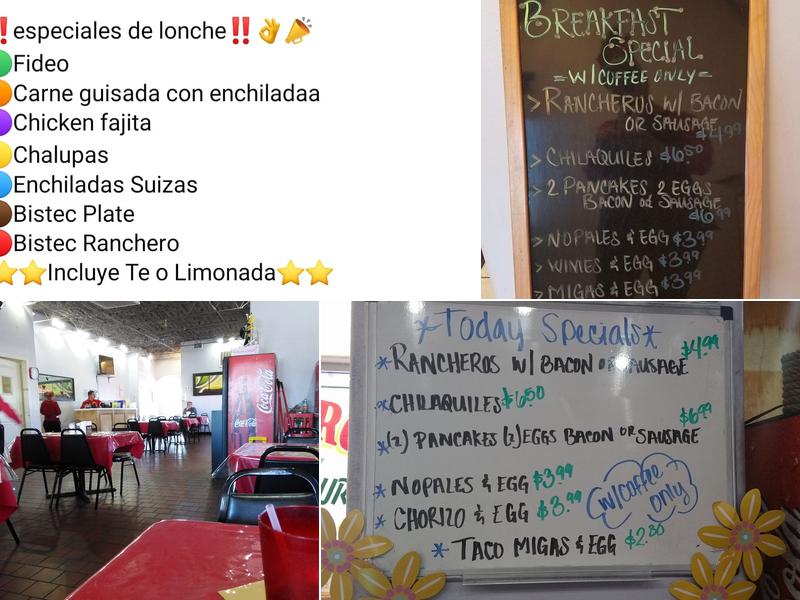 ‼especiales de lonche‼👌📣
Fideo
Carne guisada con enchiladaa
Chicken fajita
Chalupas
Enchiladas Suizas
Bistec Plate
Bistec Ranchero
⭐⭐Incluye Te o Limonada⭐⭐
BREAKFAST
SPECIAL
=W/COFFEE ONLY=
>RANCHEROS W/ BACON
OR SAUSAGE
$4.99
> CHILAQUILES $6.50
> 2 PANCAKES 2 EGGS
BACON OR SAUSAGE
$6.99
> NOPALES & EGG $3.99
> WINIES & EGG $3.99
> MIGAS & EGG $3.99
Coca-Cola
*Today Specials*
*RANCHEROS W/ BACON OR SAUSAGE $4.99
*CHILAQUILES $6.50
*(2) PANCAKES (2) EGGS BACON OR SAUSAGE $6.99
*NOPALES & EGG $3.99
*CHORIZO & EGG $3.99
w/coffee
only
*TACO MIGAS & EGG